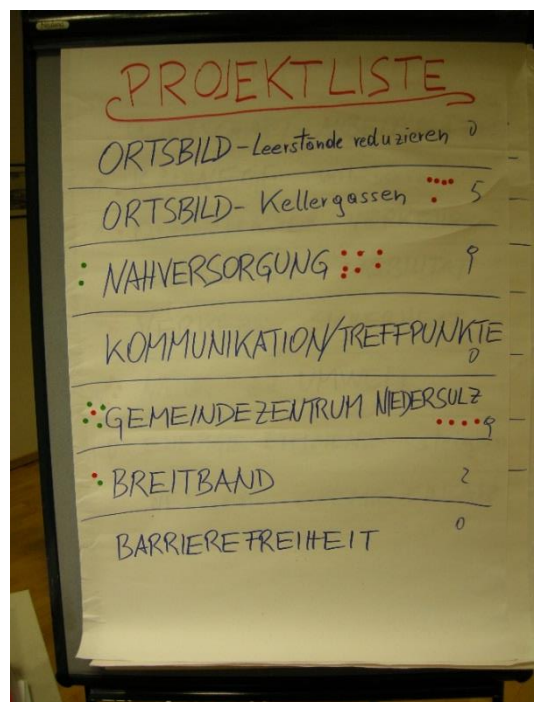 PROJEKTLISTE
ORTSBILD - Leerstände reduzieren 0
ORTSBILD - Kellergassen 5
NAHVERSORGUNG 9
KOMMUNIKATION/TREFFPUNKTE
0
GEMEINDEZENTRUM NIEDERSULZ
9
BREITBAND 2
BARRIEREFREIHEIT 0